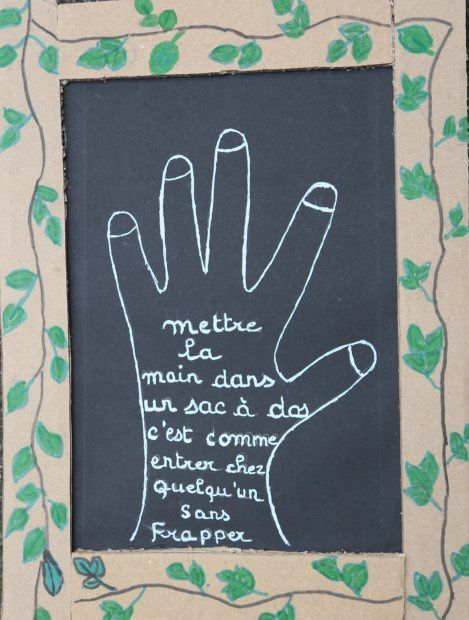 mettre
la
main dans
un sac à dos
c'est comme
entrer chez
quelqu'un
sans
frapper